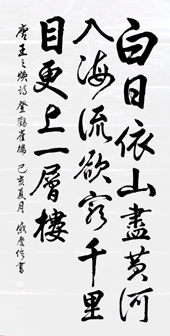 白日依山盡黃河
入海流欲窮千里
目更上一層樓
唐王之渙詩登鸛雀樓 己亥夏月